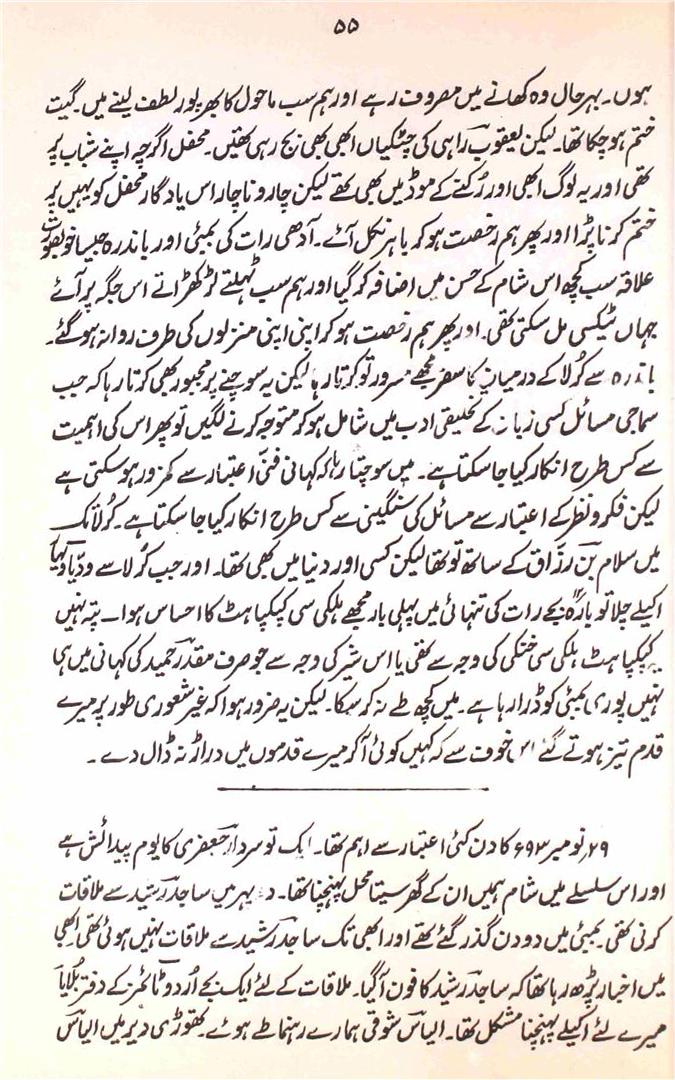 ۵۵
ہوں۔ بہرحال وہ کھانے میں مصروف رہے اور ہم سب ماحول کا بھرپور لطف لینے میں۔ گیت
ختم ہوچکا تھا۔ لیکن یعقوب راہی کی چٹکیاں ابھی بھی بج رہی تھیں۔ محفل اگرچہ اپنے شباب پر
تھی اور یہ لوگ ابھی اور رُکنے کے موڈ میں بھی تھے لیکن چار و ناچار اس یادگار محفل کو یہیں پر
ختم کرنا پڑا اور پھر ہم رخصت ہوکر باہر نکل آئے۔ آدھی رات کی بمبئی اور باندرہ جیسا خوبصورت
علاقہ سب کچھ اس شام کے حسن میں اضافہ کرگیا اور ہم سب ٹہلتے لڑکھڑاتے اس جگہ پر آئے
جہاں ٹیکسی مل سکتی تھی۔ اور پھر ہم رخصت ہوکر اپنی اپنی منزلوں کی طرف روانہ ہوگئے۔
باندرہ سے کُرلا کے درمیان کا سفر مجھے مسرور تو کرتا رہا لیکن یہ سوچنے پر مجبور بھی کرتا رہا کہ جب
سماجی مسائل کسی زبان کے تخلیقی ادب میں شامل ہوکر متوجہ کرنے لگیں تو پھر اس کی اہمیت
سے کس طرح انکار کیا جاسکتا ہے۔ میں سوچتا رہا کہ کہانی فنّی اعتبار سے کمزور ہوسکتی ہے
لیکن فکر و نظر کے اعتبار سے مسائل کی سنگینی سے کس طرح انکار کیا جاسکتا ہے۔ کُرلا تک
میں سلام بن رزّاق کے ساتھ تو تھا لیکن کسی اور دنیا میں بھی تھا۔ اور جب کُرلا سے ودّیا وہار
اکیلے چلا تو بارہ بجے رات کی تنہائی میں پہلی بار مجھے ہلکی سی کپکپاہٹ کا احساس ہوا۔ پتہ نہیں
یہ کپکپاہٹ ہلکی سی خنکی کی وجہ سے تھی یا اس شیر کی وجہ سے جو صرف مقدر حمید کی کہانی میں ہی
نہیں پوری بمبئی کو ڈرا رہا ہے۔ میں کچھ طے نہ کرسکا۔ لیکن یہ ضرور ہوا کہ غیر شعوری طور پر میرے
قدم تیز ہوتے گئے اس خوف سے کہ کہیں کوئی آکر میرے قدموں میں دراڑ نہ ڈال دے۔
۲۹ نومبر ۹۳ء کا دن کئی اعتبار سے اہم تھا۔ ایک تو سردار جعفری کا یوم پیدائش ہے
اور اس سلسلے میں شام ہمیں ان کے گھر سیتا محل پہنچنا تھا۔ دوپہر میں ساجد رشید سے ملاقات
کرنی تھی۔ بمبئی میں دو دن گذر گئے تھے اور ابھی تک ساجد رشید سے ملاقات نہیں ہوئی تھی۔ ابھی
میں اخبار پڑھ رہا تھا کہ ساجد رشید کا فون آگیا۔ ملاقات کے لئے ایک بجے اُردو ٹائمز کے دفتر بُلایا
میرے لئے اکیلے پہنچنا مشکل تھا۔ الیاس شوقی ہمارے رہنما طے ہوئے۔ تھوڑی دیر میں الیاس